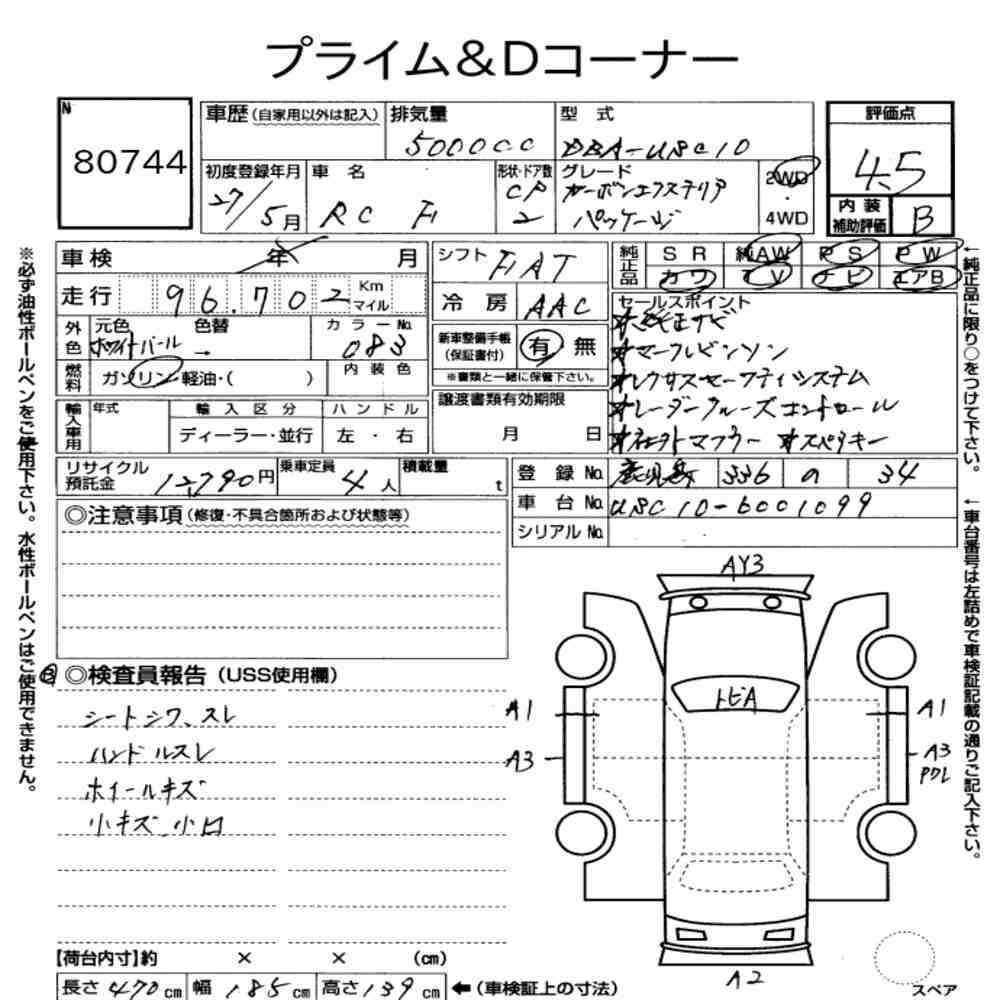 プライム&Dコーナー
N
80744
車歴(自家用以外は記入)
排気量
5000cc
型式
DBA-USC10
評価点
4.5
初度登録年月
27/5月
車名
RC F
形状・ドア数
CP
2
グレード
カーボンエクステリア
パッケージ
2WD
・
4WD
内装
補助評価
B
車検 年 月
走行 96.702 Km マイル
外色 元色 色替
ホワイトパール →
カラーNo.
083
燃料 ガソリン・軽油・( )
内装色
輸入車用 年式 輸入区分 ハンドル
ディーラー・並行 左・右
シフト FAT
冷房 AAC
新車整備手帳
(保証書付)
有 無
※書類と一緒に保管下さい。
譲渡書類有効期限
月 日
純正品 SR 純AW PS PW
カワ TV ナビ エアB
セールスポイント
純正ナビ
マークレビンソン
レクサスセーフティシステム
レーダークルーズコントロール
社外マフラー スペアキー
リサイクル
預託金
12,790円
乗車定員
4人
積載量
t
登録No. 鹿児島 336 の 34
車台No. USC10-6001099
シリアルNo.
◎注意事項(修復・不具合箇所および状態等)
◎検査員報告(USS使用欄)
シートシワ、スレ
ハンドルスレ
ホイールキズ
小キズ 小凹
AY3
トビA
A1
A3
A1
A3
PDL
A2
スペア
【荷台内寸】約 × × (cm)
長さ 470cm 幅 185cm 高さ 139cm ←(車検証上の寸法)
※必ず油性ボールペンをご使用下さい。水性ボールペンはご使用できません。
←純正品に限り○をつけて下さい。
←車台番号は左詰めで車検証記載の通りご記入下さい。